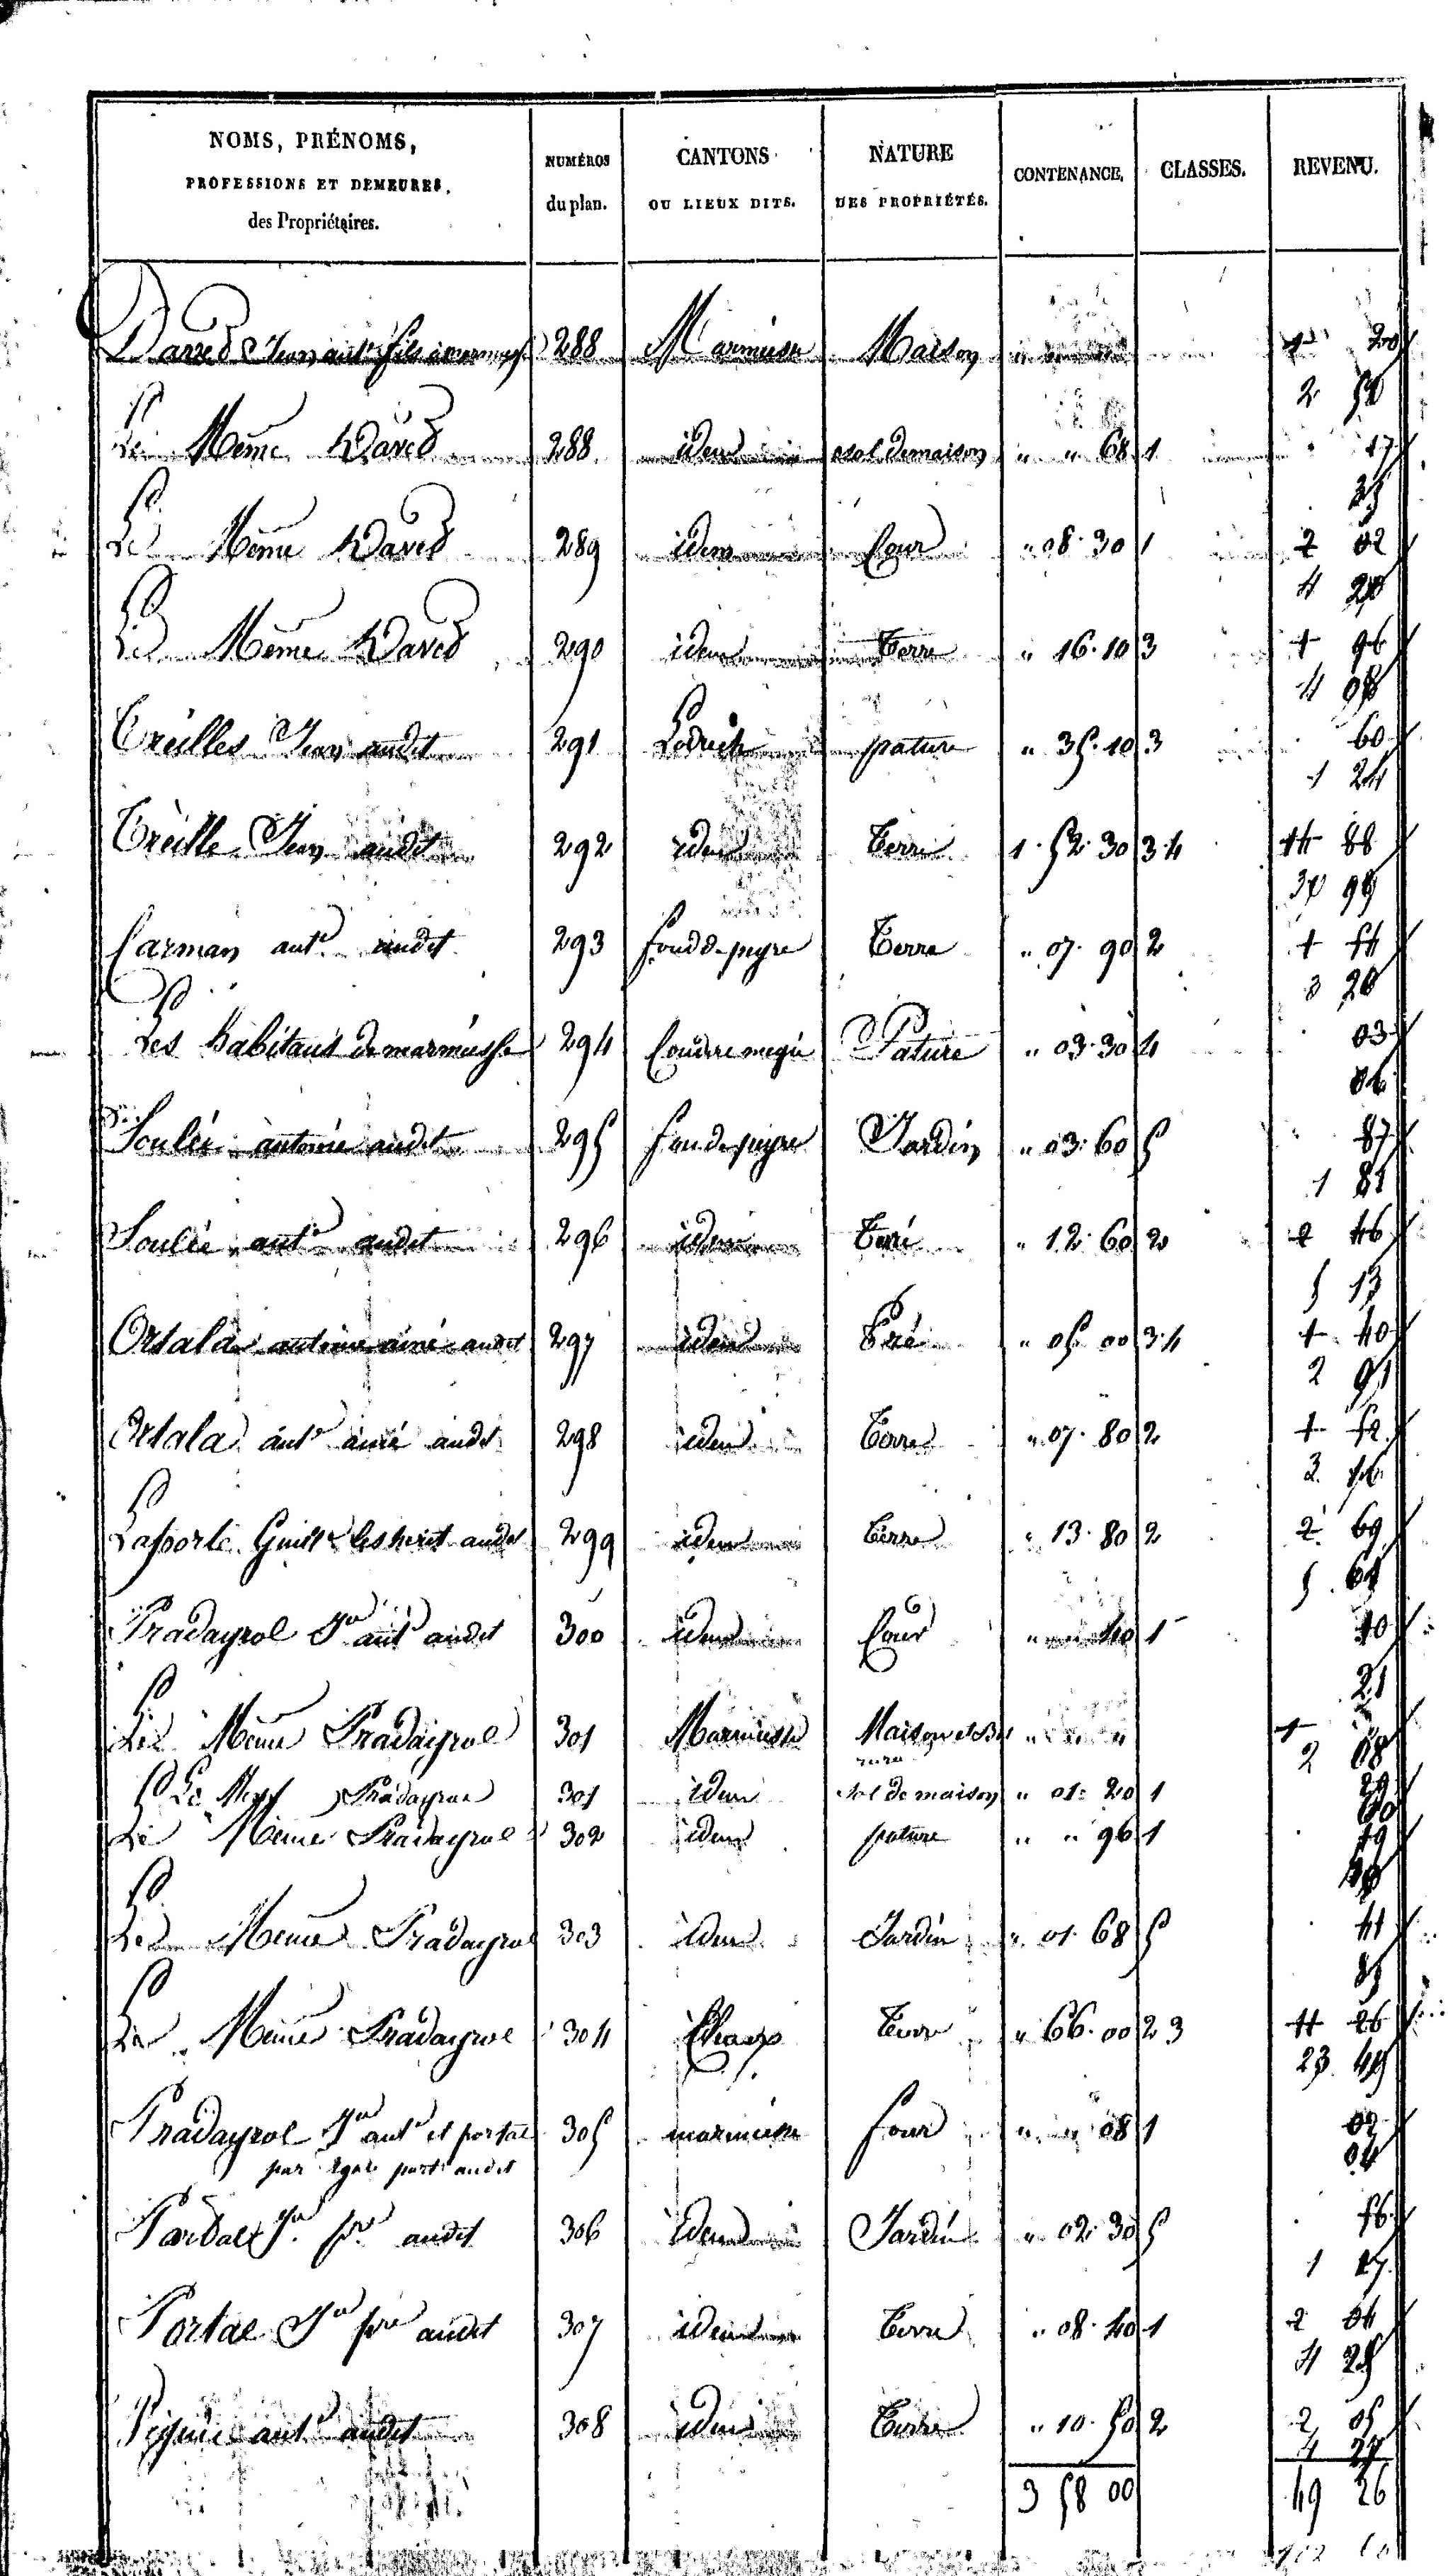 NOMS, PRÉNOMS, PROFESSIONS ET DEMEURES, des Propriétaires. NUMÉROS du plan. CANTONS OU LIEUX DITS. NATURE DES PROPRIÉTÉS. CONTENANCE. CLASSES. REVENU.
David Jean ant. fils 288 Marmiesse Maison 1 20
2 50
Le Même David 288 idem sol de maison " " 68 1 17
35
Le Même David 289 idem Cour " 08 30 1 2 02
4 20
Le Même David 290 idem Terre " 16 10 3 1 96
4 08
Treilles Jean audit 291 pature " 35 10 3 60
1 24
Treille Jean audit 292 idem Terre 1 52 30 3 4 14 88
30 99
Carman ant.e audit 293 fond de peyre Terre " 07 90 2 1 54
3 20
Les habitans de marmiesse 294 Pature " 03 30 4 03
06
Soulié antoine audit 295 fon de peyre Jardin " 03 60 5 87
1 81
Soulié ant.e audit 296 idem Terre " 12 60 2 2 46
5 13
Ortala antoine ainé audit 297 idem Pré " 05 00 3 4 1 40
2 91
Ortala ant.e ainé audit 298 idem Terre " 07 80 2 1 52
3 16
Laporte Guill.e les herit. audit 299 idem Terre " 13 80 2 2 69
5 61
Pradayrol J.n ant.e audit 300 idem Cour " " 40 1 10
21
Le Même Pradayrol 301 Marmiesse Maison et " " " 1
2 08
Le Même Pradayrol 301 idem sol de maison " 01 20 1 29
60
Le Même Pradayrol 302 idem pature " " 96 1 19
Le Même Pradayrol 303 idem Jardin " 01 68 5 41
85
Le Même Pradayrol 304 Terre " 66 00 2 3 11 26
23 45
Pradayrol J.n ant.e et portal 305 marmiesse four " " 08 1 02
par égale part audit 04
Portal J.n p.re audit 306 idem Jardin " 02 30 5 56
1 17
Portal J.n p.re audit 307 idem Terre " 08 40 1 2 04
4 25
ant.e audit 308 idem Terre " 10 50 2 2 05
4 27
3 58 00 49 26